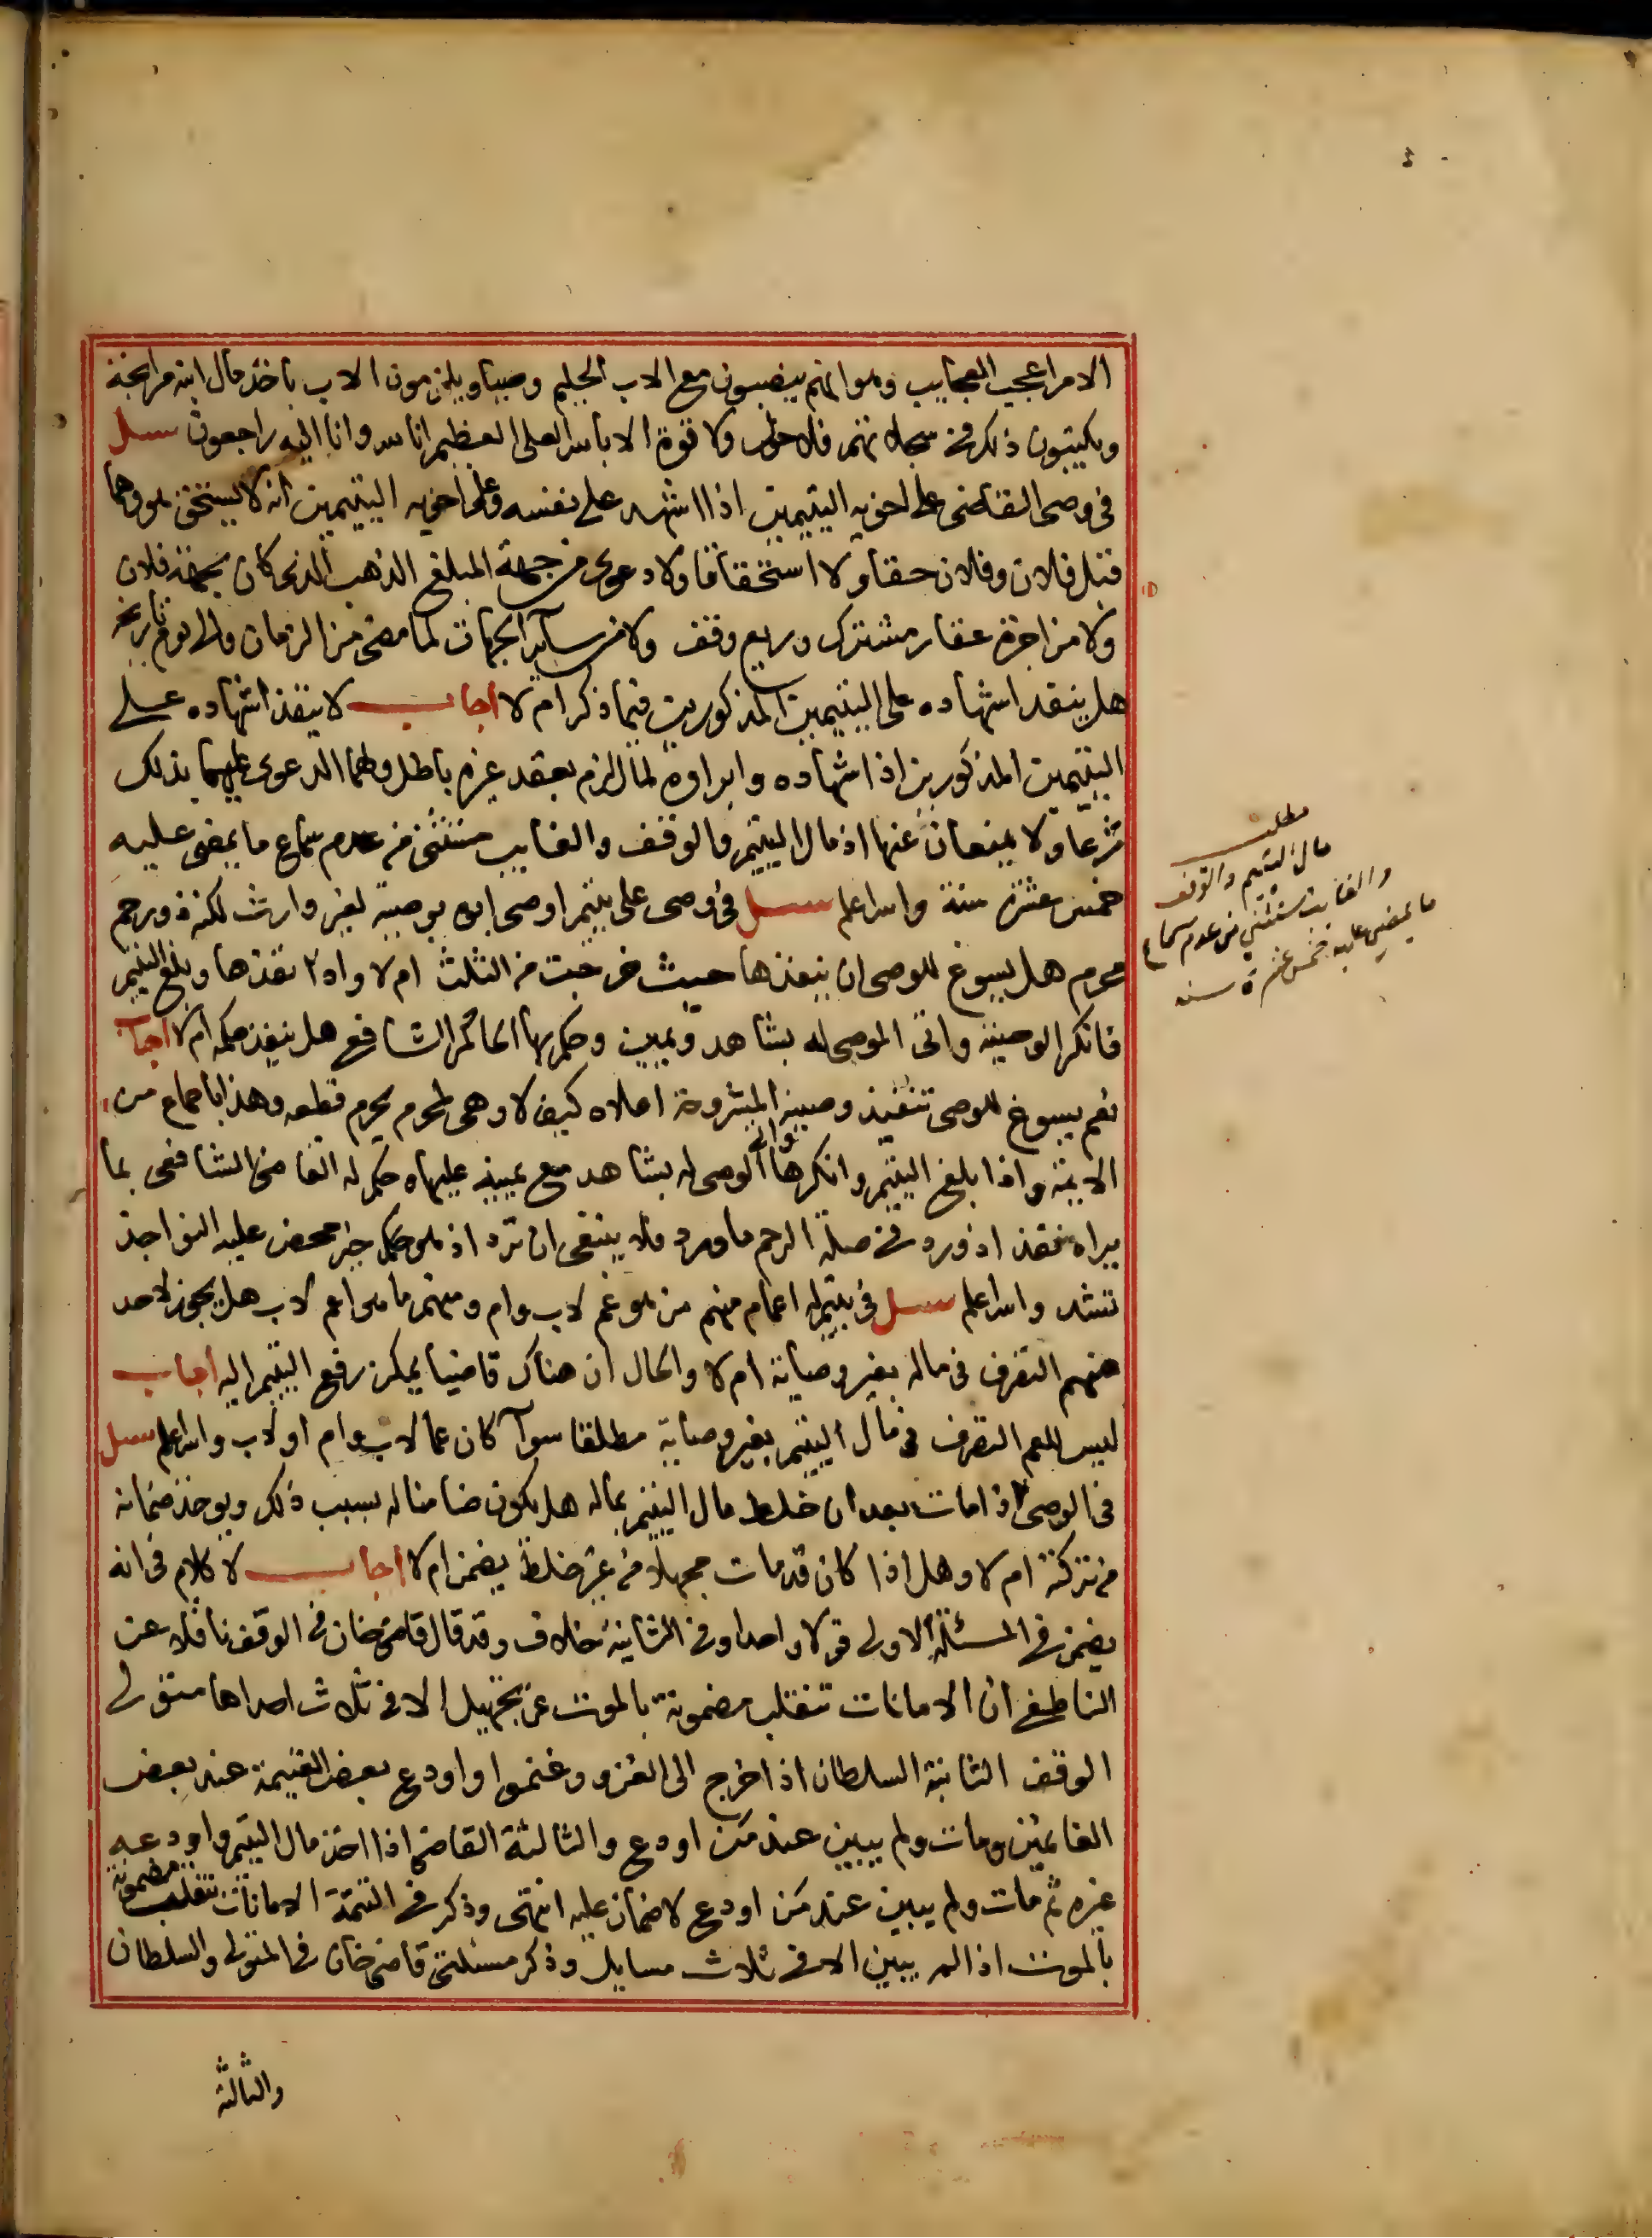 الامر اعجب العجايب وهو انهم ينصبون مع الاب الحليم وصيا ويلزمون الاب باخذ مال ابنه مرابحة
ويكتبون ذلك في سجلاتهم فلا حول ولا قوة الا بالله العلى العظيم انا لله وانا اليه راجعون سئل
فى وصى القاضى على اخويه اليتيمين اذا اشهد على نفسه وعلى اخويه اليتيمين انه لا يستحق هو وهما
قبل فلان وفلان حقا ولا استحقاقا ولا دعوى من جهة المبلغ الذهب الذى كان بجهة فلان
ولا من اجرة عقار مشترك وريع وقف ولا من ساير الجهات لما مضى من الزمان والى يوم تاريخه
هل ينفذ اشهاده على اليتيمين المذكورين فيما ذكر ام لا اجاب لا ينفذ اشهاده على
اليتيمين المذكورين اذ اشهاده وابراوه لمال لزم بعقد غيره باطل ولهما الدعوى عليهما بذلك
شرعا ولا يمنعان عنها اذ مال اليتيم والوقف والغايب مستثنى من عدم سماع ما يمضى عليه
خمس عشرة سنة والله اعلم سئل فى وصى على يتيم اوصى ابوه بوصية لغير وارث لكنه ذو رحم
محرم هل يسوغ للوصى ان ينفذها حيث خرجت من الثلث ام لا واذا نفذها وبلغ اليتيم
فانكر الوصية واتى الموصى له بشاهد ويمين وحكم بها الحاكم الشافعى هل ينفذ حكمه ام لا اجاب
نعم يسوغ للوصى تنفيذ وصيته المشروحة اعلاه كيف لا وهى لمحرم يحرم قطعه وهذا باجماع من
الايمة واذا بلغ اليتيم وانكرها واتى الموصى له بشاهد مع يمينه عليها وحكم له القاضى الشافعى بما
يراه نفذ اذ ورد فى صلة الرحم ما ورد فلا ينبغى ان ترد اذ هو حكم خير محض عليه النواجذ
تشد والله اعلم سئل فى يتيم له اعمام منهم من هو عم لاب وام ومنهم ما هو عم لاب هل يجوز لاحد
منهم التصرف فى ماله بغير وصاية ام لا والحال ان هناك قاضيا يمكن رفع اليتيم اليه اجاب
ليس للعم التصرف فى مال اليتيم بغير وصاية مطلقا سوآ كان عما لاب وام او لاب والله اعلم سئل
فى الوصى اذا مات بعد ان خلط مال اليتيم بماله هل يكون ضامنا له بسبب ذلك ويوخذ ضمانه
من تركته ام لا وهل اذا كان قد مات مجهلا من غير خلط يضمن ام لا اجاب لا كلام فى انه
يضمن فى المسئلة الاولى قولا واحدا وفى الثانية خلاف وقد قال قاضى خان فى الوقف ناقلا عن
الناطفى ان الامانات تنقلب مضمونة بالموت عن تجهيل الا فى ثلاث احداها متولى
الوقف الثانية السلطان اذا خرج الى الغزو وغنموا واودع بعض الغنيمة عند بعض
الغانمين ومات ولم يبين عند من اودع والثالثة القاضى اذا اخذ مال اليتيم واودعه
غيره ثم مات ولم يبين عند من اودع لا ضمان عليه انتهى وذكر فى التتمة الامانات تنقلب مضمونة
بالموت اذا لم يبين الا فى ثلاث مسايل وذكر مسئلتى قاضى خان فى المتولى والسلطان
والثالثة
مطلب
مال اليتيم والوقف
والغايب مستثنى من عدم سماع
ما يمضى عليه خمس عشرة سنه